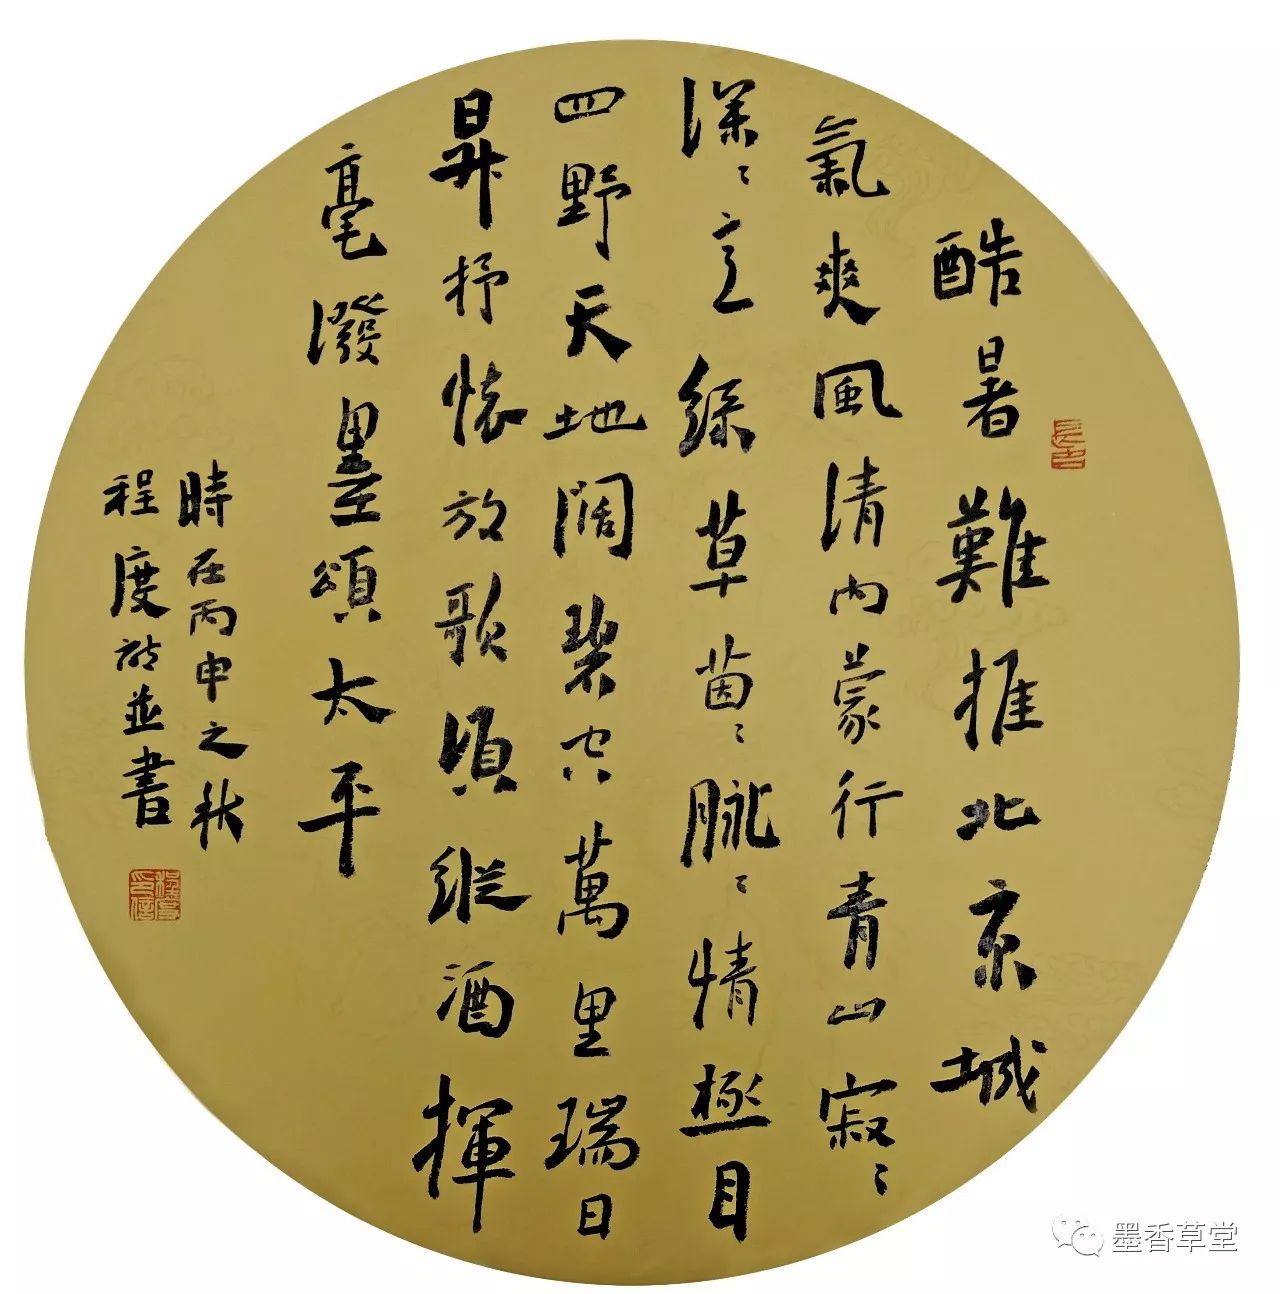 酷暑難推北京城
氣爽風清內蒙行青山寂〻
深〻意綠草茵〻脉〻情極目
四野天地闊碧空萬里瑞日
昇抒懷放歌須縱酒揮
毫潑墨頌太平
時在丙申之秋
程度詩並書
墨香草堂